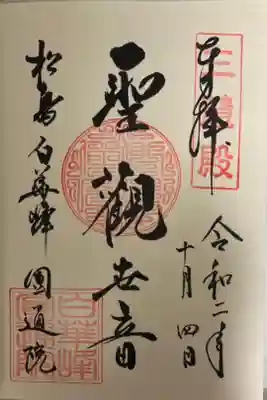 奉拝
三慧殿
令和二年
十月四日
聖觀世音
松島白華峰圓通院
白華峰